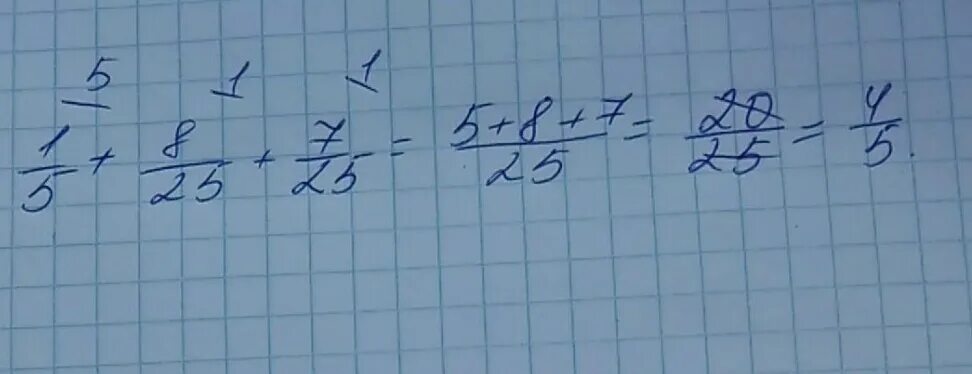 5 1 1
1/5 + 8/25 + 7/25 = (5+8+7)/25 = 20/25 = 4/5.